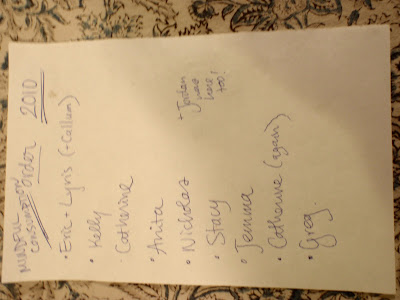 MINDFUL
CONSUMPTION
order 2010
• Eric + Lyris (+ Callum)
• Kelly
Catherine
• Anita
• Nicholas
+ Jordan
was
here
too!
• Stacy
• Jemma
• Catherine (again)
• Greg.